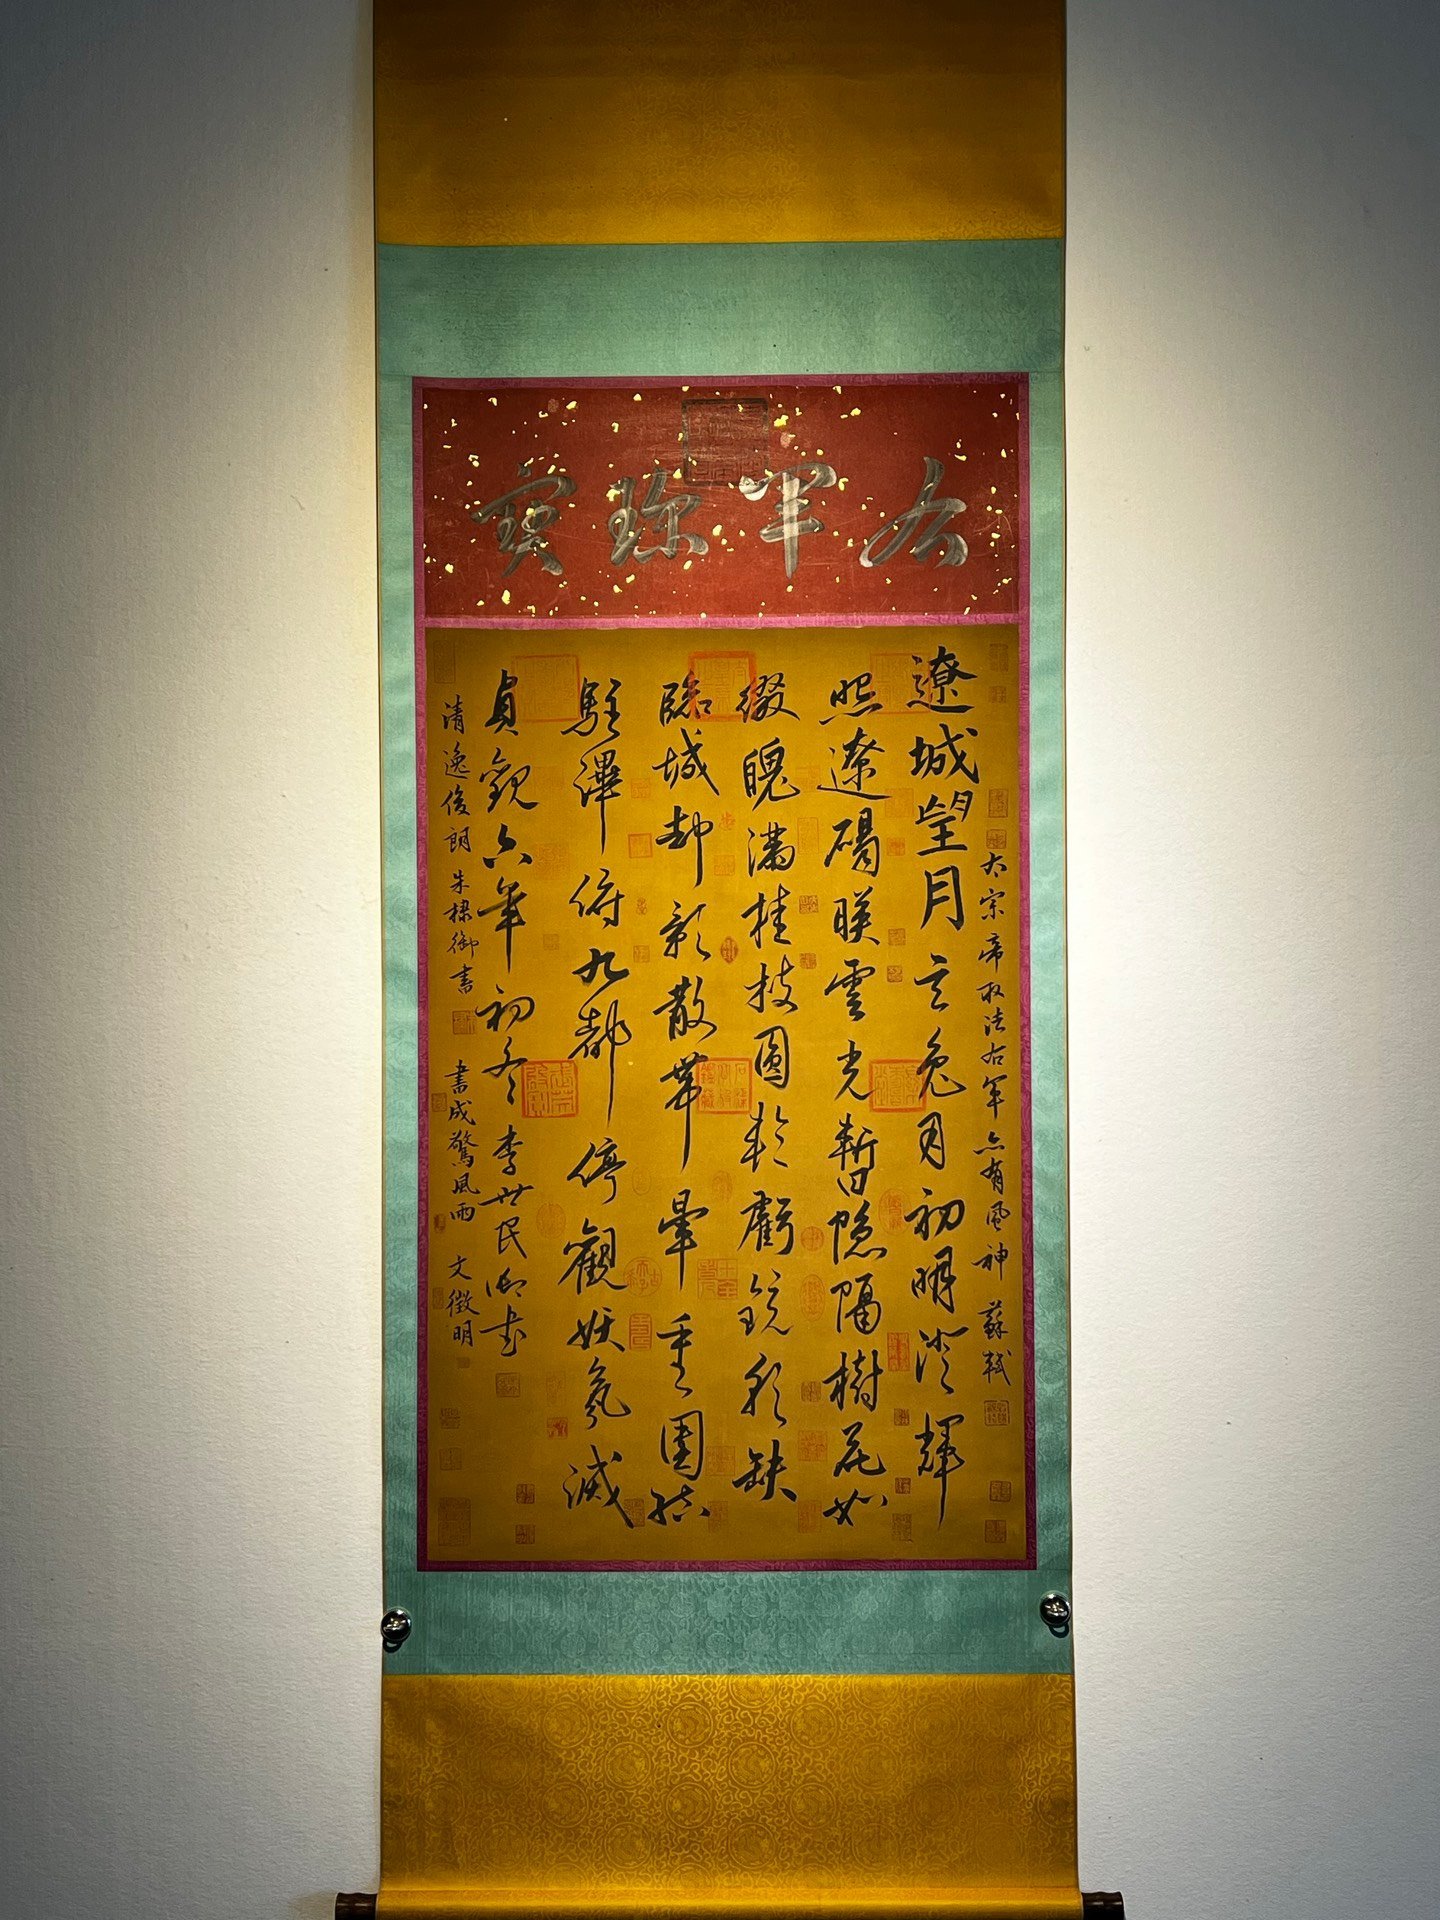 右軍珍寶
太宗帝取法右軍亦有風神 蘇軾
遼城望月玄兔月初明澄輝
照遼碣映雲光暫隱隔樹花如
綴魄滿桂枝圓輪虧鏡彩缺
臨城却影散帶暈重圍結
駐蹕俯九都停觀妖氛滅
貞觀六年初冬李世民御書
清逸俊朗 朱棣御書 書成驚風雨 文徵明